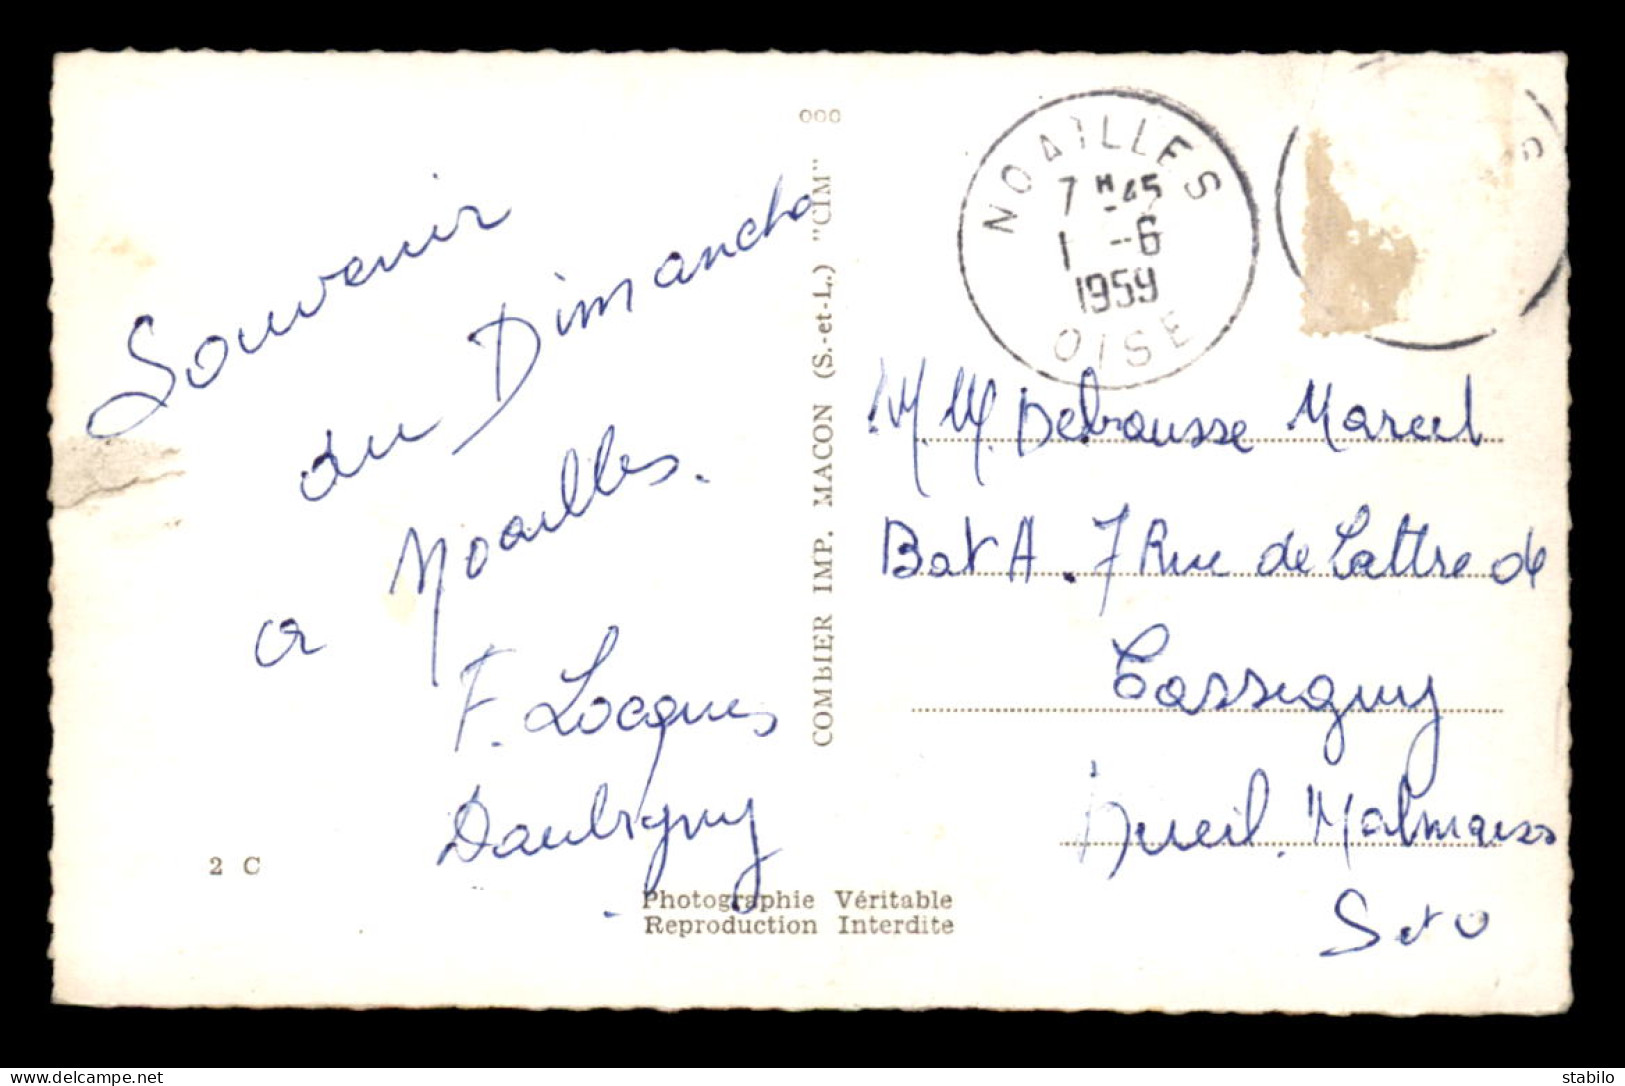 Souvenir
du Dimanche
a Noailles.
F. Locques
Daubigny
2 C
Photographie Véritable
Reproduction Interdite
000
COMBIER IMP. MACON (S.-et-L.) "CIM"
NOAILLES
7 H 45
1 -6
1959
OISE
M.M. Debrousse Marcel
Bat A. 7 Rue de Lattre de
Tassigny
Rueil. Malmaison
S et O
stabilo
delcampe.net